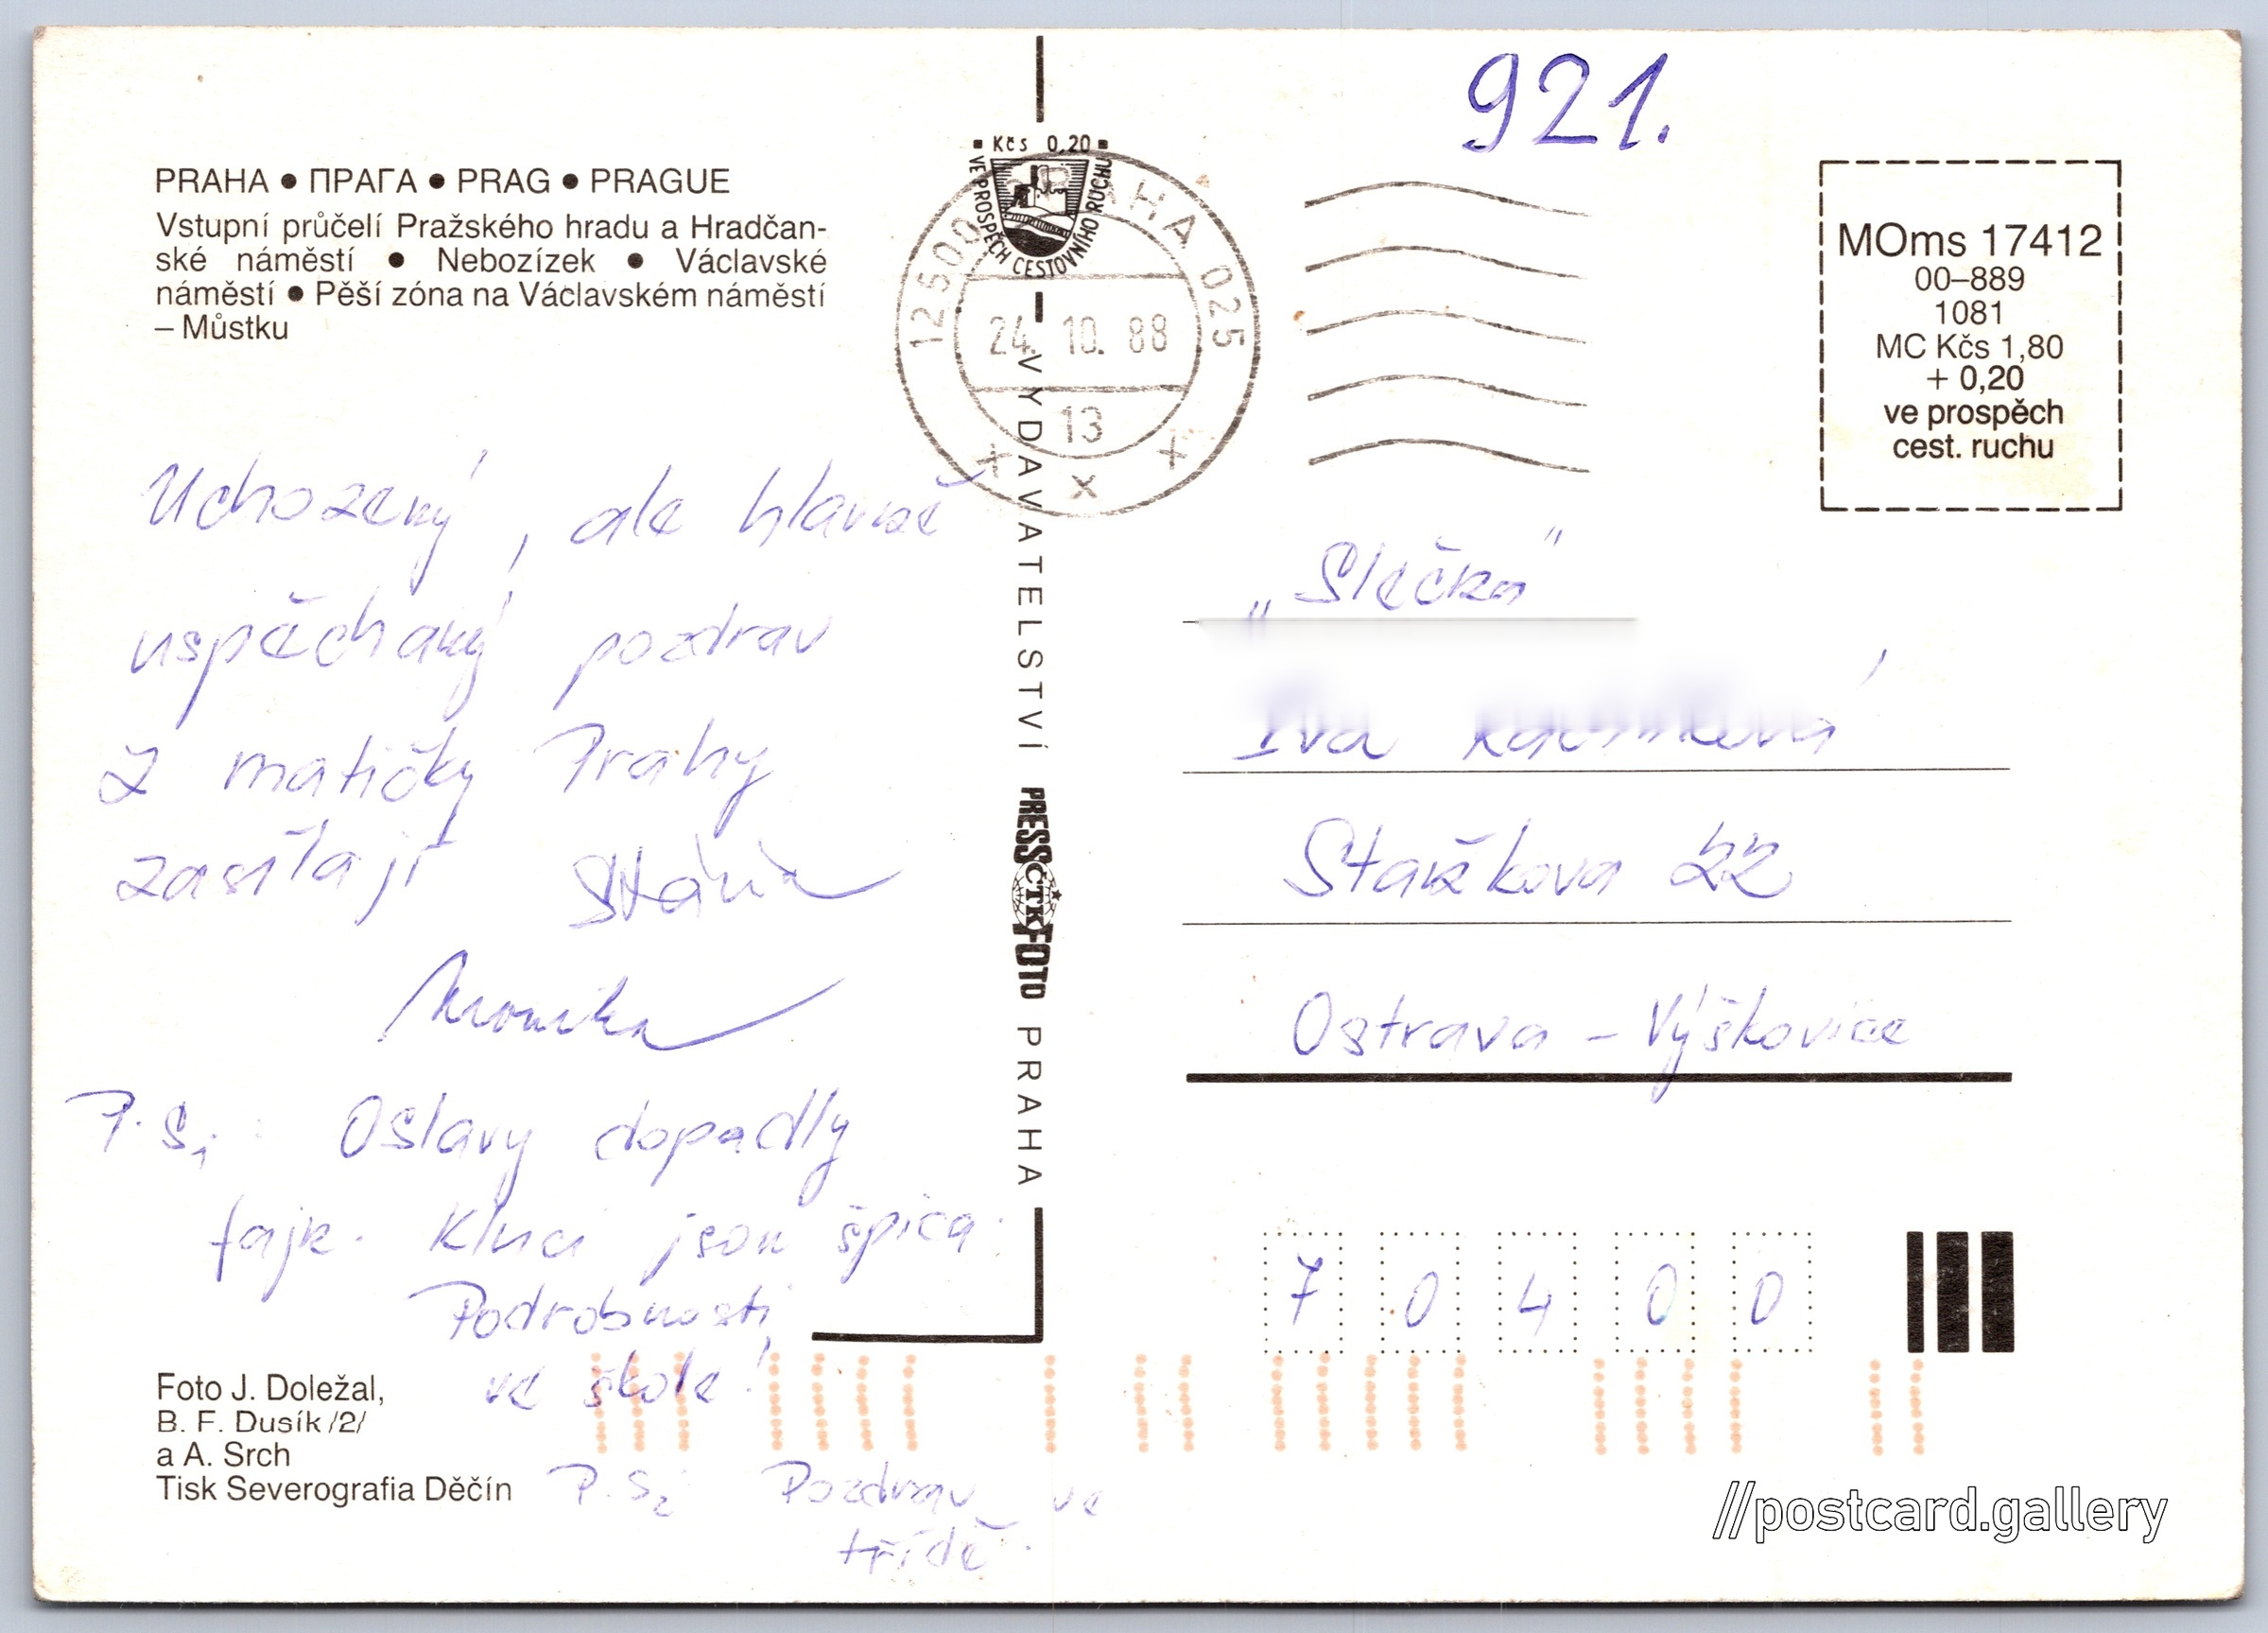 921.
PRAHA ● ПРАГА ● PRAG ● PRAGUE
Vstupní průčelí Pražského hradu a Hradčan-
ské náměstí ● Nebozízek ● Václavské
náměstí ● Pěší zóna na Václavském náměstí
– Můstku
▪ Kčs 0,20 ▪
VE PROSPĚCH CESTOVNÍHO RUCHU
12500 PRAHA 025
24. 10. 88
13
MOms 17412
00–889
1081
MC Kčs 1,80
+ 0,20
ve prospěch
cest. ruchu
Uchozený, ale hlavně
uspěchaný pozdrav
z matičky Prahy
zasílají Stáňa
Monika
P.S.1 Oslavy dopadly
fajn. Kluci jsou špica.
Podrobnosti
ve škole!
P.S.2 Pozdrav ve
třídě.
VYDAVATELSTVÍ PRESSČTKFOTO PRAHA
„Slečna"
Iva
Staňkova 22
Ostrava – Výškovice
7 0 4 0 0
Foto J. Doležal,
B. F. Dusík /2/
a A. Srch
Tisk Severografia Děčín
//postcard.gallery